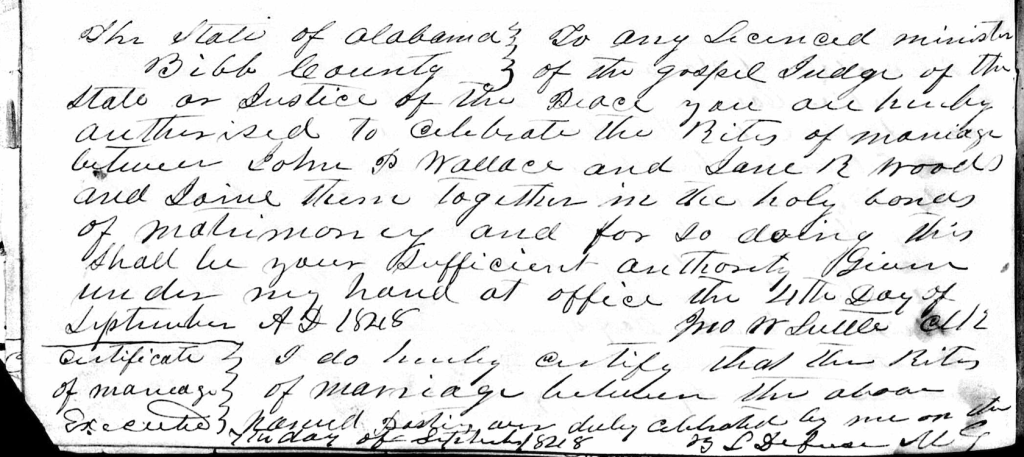 The State of Alabama } To any Licenced minister
Bibb County } of the gospel Judge of the
State or Justice of the Peace you are hereby
authorised to celebrate the Rites of mariage
between John P Wallace and Jane R Woods
and Joine them together in the holy bonds
of matrimoney and for so doing this
Shall be your Sufficient authority Given
under my hand at office the 4th Day of
September AD 1848 Jno W Suttle Clk
Certificate } I do hereby certify that the Rites
of mariage } of marriage between the above
Executed } named parties was duly celebrated by me on the
day of September 1848 M G